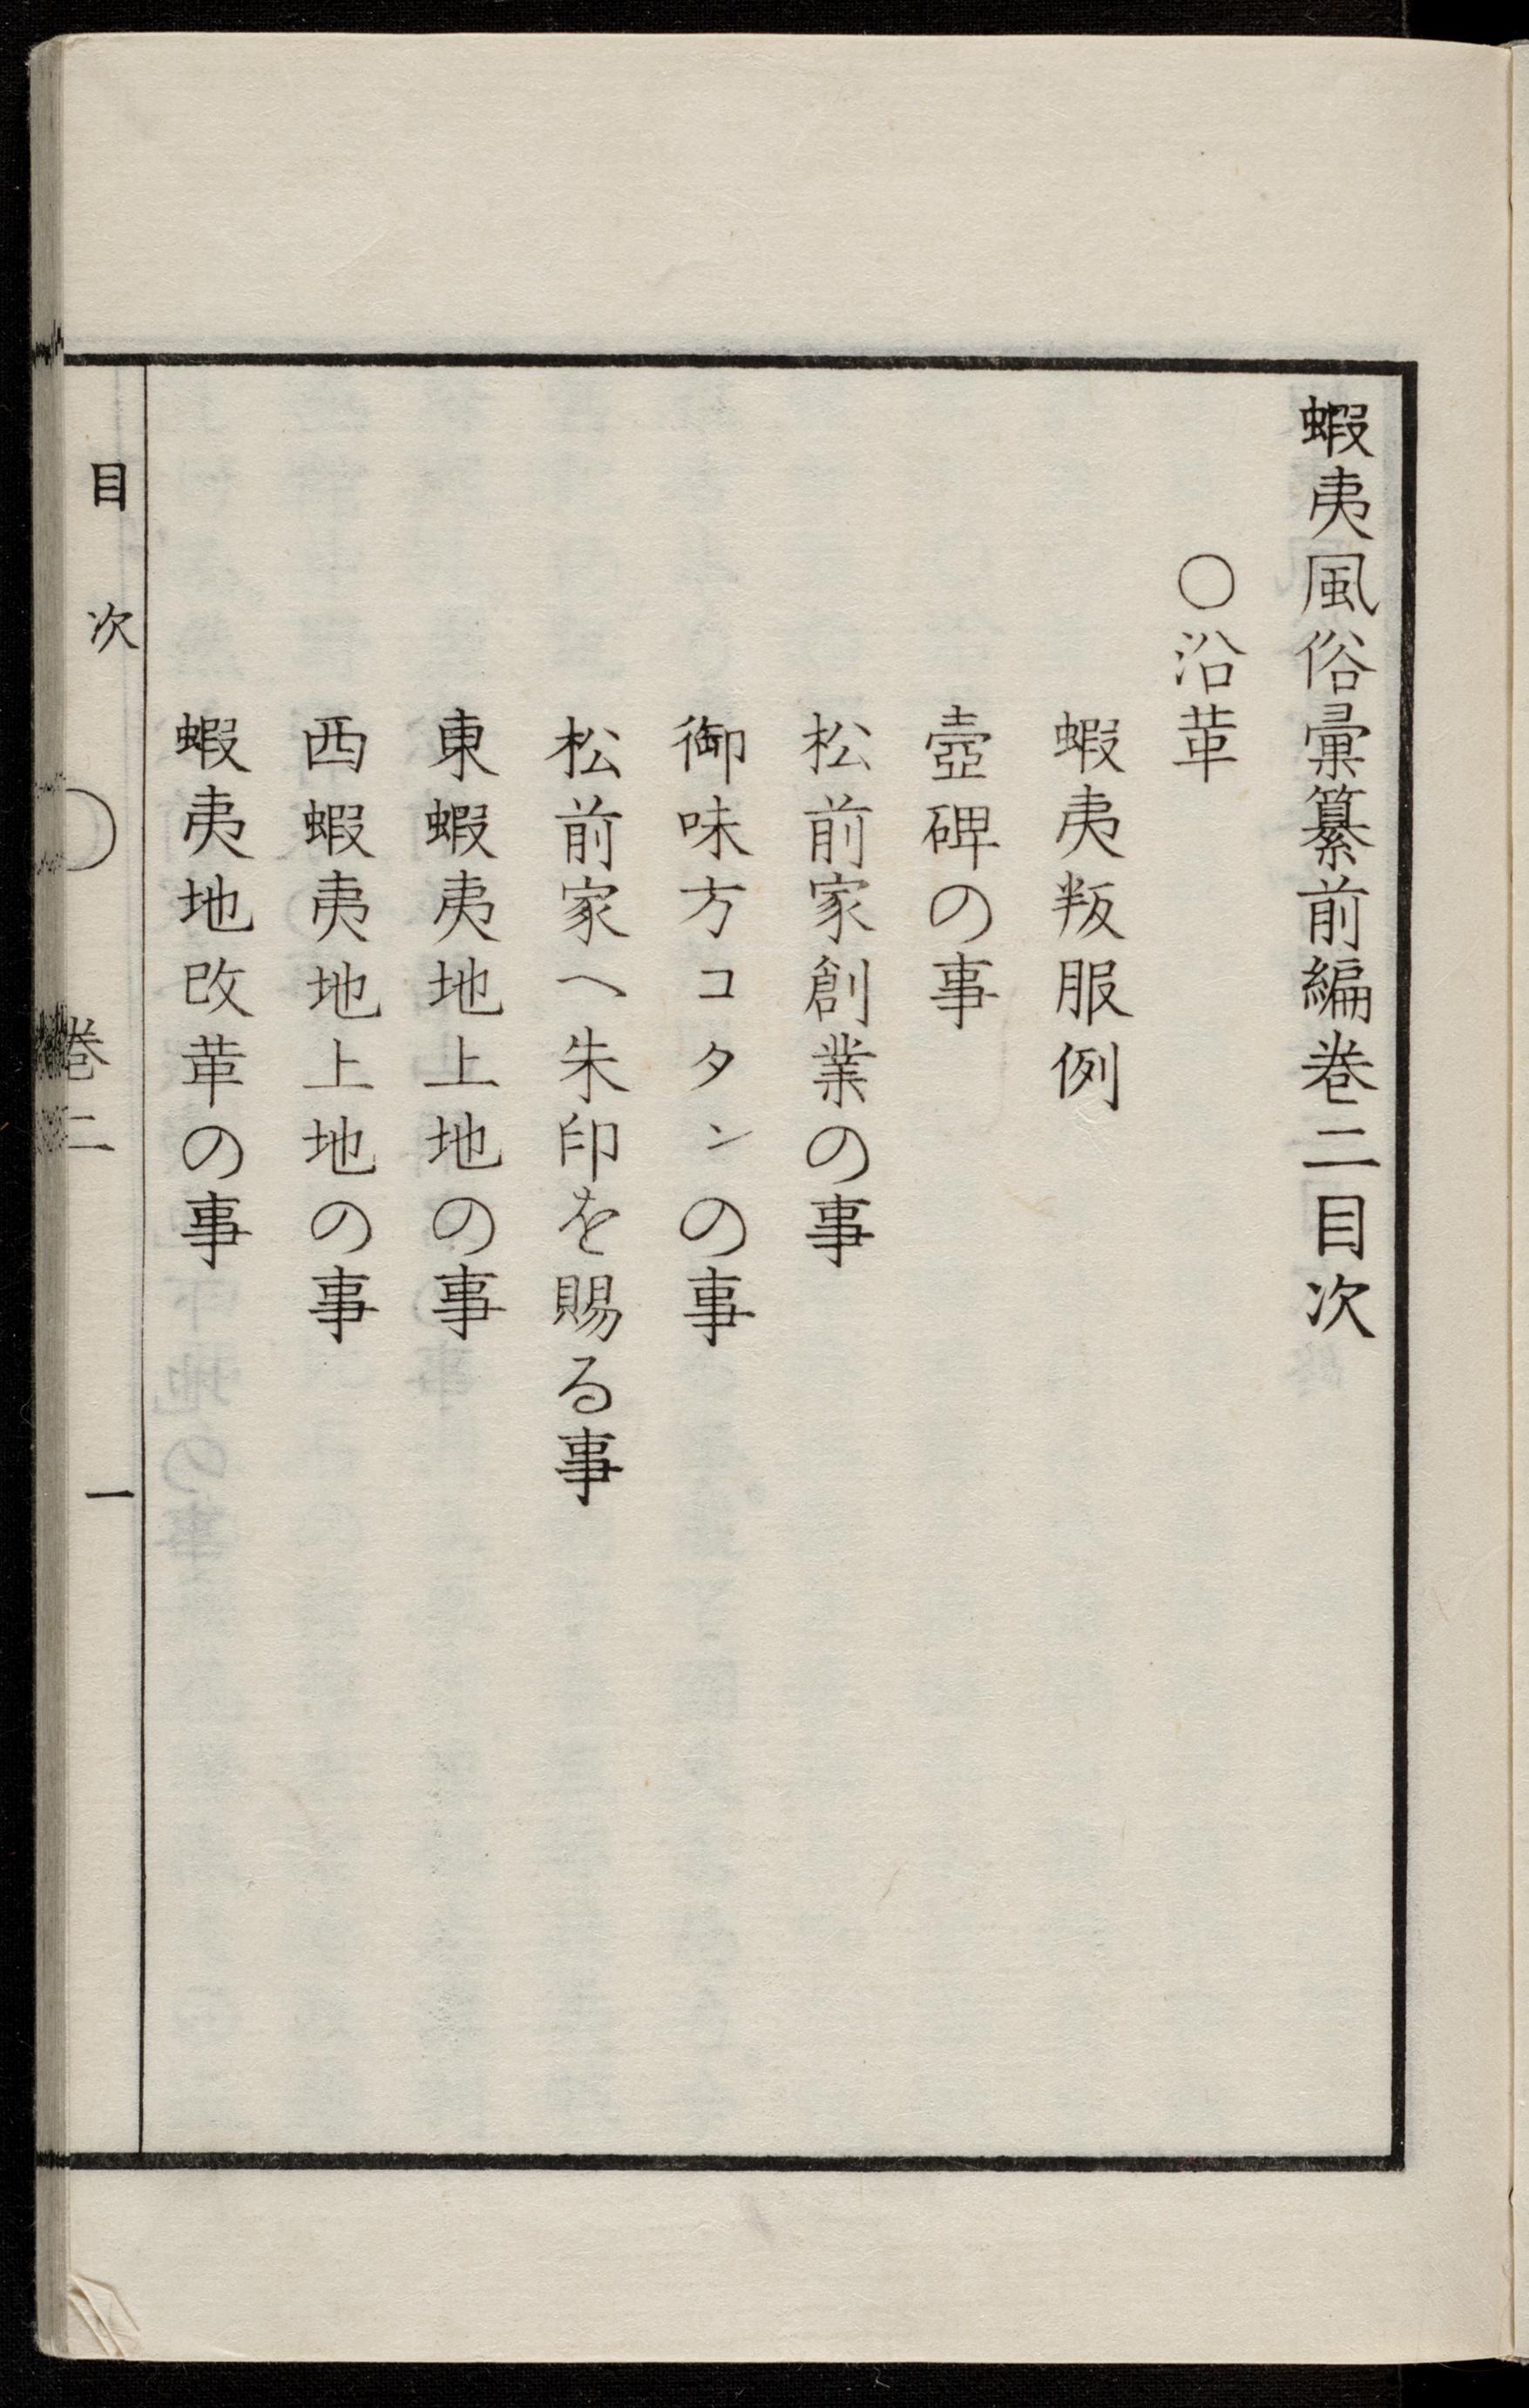 蝦夷風俗彙纂前編巻二目次
〇沿革
蝦夷叛服例
壺碑の事
松前家創業の事
御味方コタンの事
松前家へ朱印を賜る事
東蝦夷地上地の事
西蝦夷地上地の事
蝦夷地改革の事
目次 〇 巻二 一